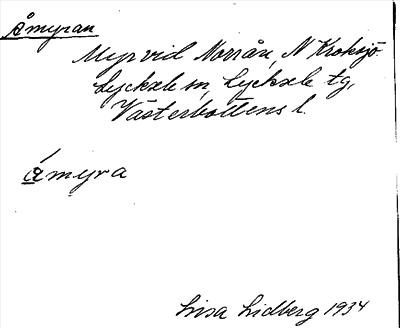 Åmyran
Myr vid Norrån, N Kroksjö
Lycksele sn, Lycksele tg,
Västerbottens l.
åmyra
Lisa Lidberg 1934